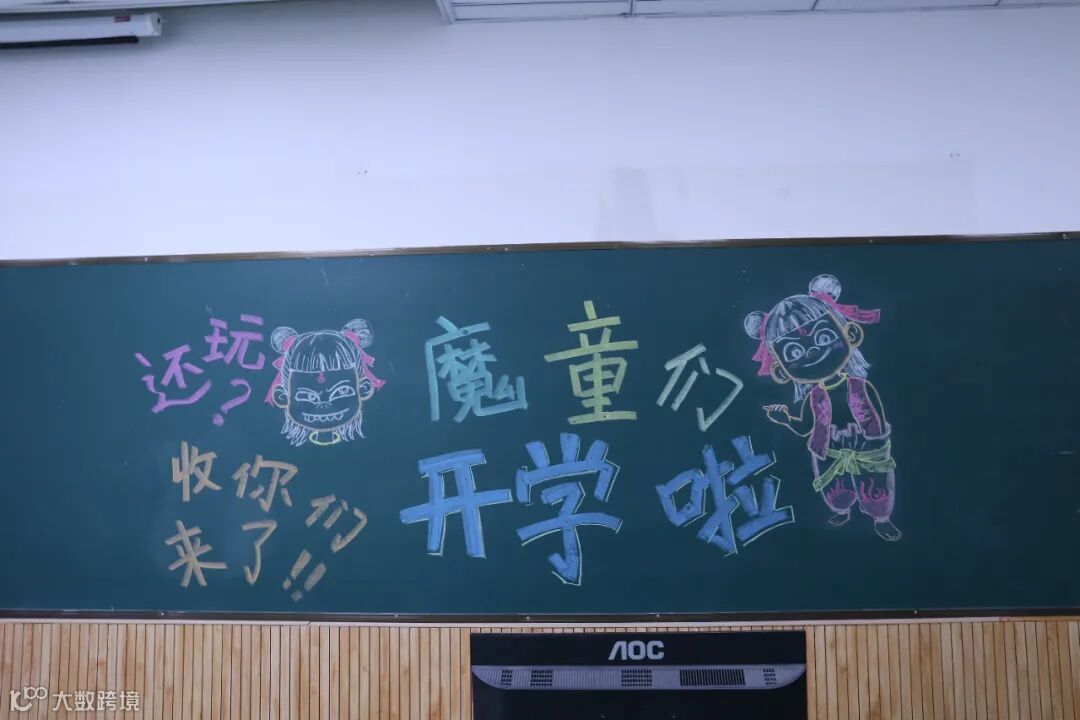 还玩?
收你们
来了!!
魔童们
开学啦
AOC
大数跨境